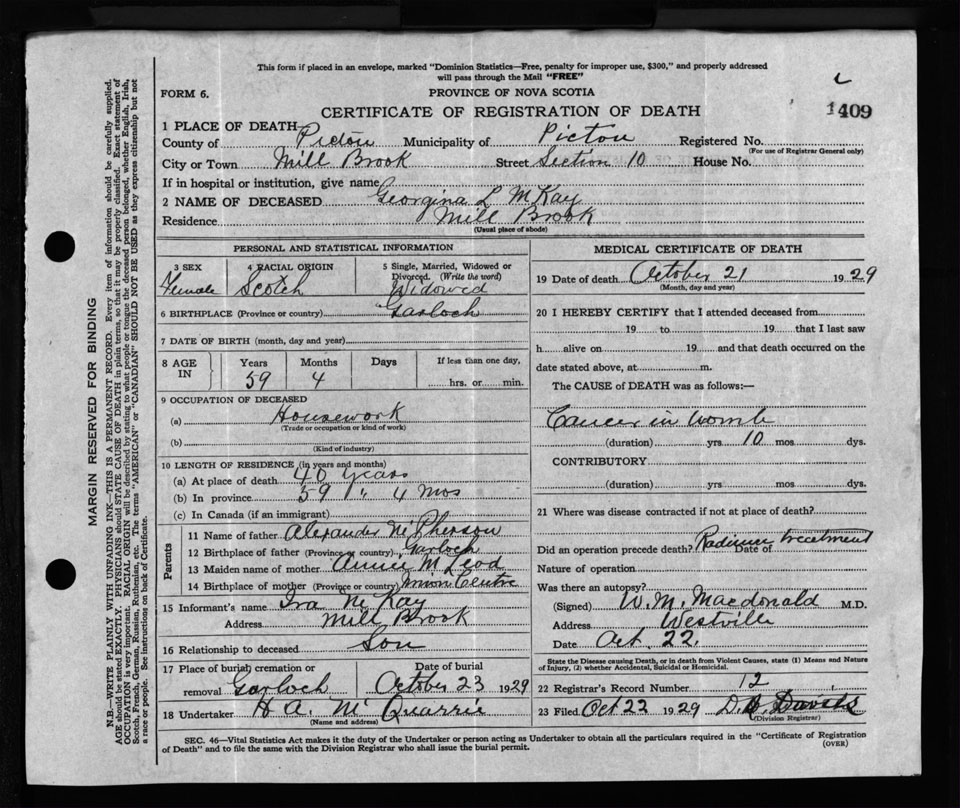 This form if placed in an envelope, marked "Dominion Statistics—Free, penalty for improper use, $300," and properly addressed
will pass through the Mail "FREE"
FORM 6.
PROVINCE OF NOVA SCOTIA
CERTIFICATE OF REGISTRATION OF DEATH
1409
1 PLACE OF DEATH
County of Pictou Municipality of Pictou Registered No.
(For use of Registrar General only)
City or Town Mill Brook Street Section 10 House No.
If in hospital or institution, give name
2 NAME OF DECEASED Georgina L McKay
Residence Mill Brook
(Usual place of abode)
PERSONAL AND STATISTICAL INFORMATION
3 SEX Female
4 RACIAL ORIGIN Scotch
5 Single, Married, Widowed or Divorced. (Write the word) Widowed
6 BIRTHPLACE (Province or country) Garloch
7 DATE OF BIRTH (month, day and year)
8 AGE IN Years Months Days If less than one day,
59 4 hrs. or min.
9 OCCUPATION OF DECEASED
(a) Housework
(Trade or occupation or kind of work)
(b)
(Kind of industry)
10 LENGTH OF RESIDENCE (in years and months)
(a) At place of death 40 years
(b) In province 59 " 4 mos
(c) In Canada (if an immigrant)
Parents
11 Name of father Alexander McPherson
12 Birthplace of father (Province or country) Garloch
13 Maiden name of mother Annie McLeod
14 Birthplace of mother (Province or country) Union Centre
15 Informant's name Ira McKay
Address Mill Brook
16 Relationship to deceased Son
17 Place of burial, cremation or removal Garloch
Date of burial October 23 1929
18 Undertaker H A. McQuarrie
(Name and address)
MEDICAL CERTIFICATE OF DEATH
19 Date of death October 21 1929
(Month, day and year)
20 I HEREBY CERTIFY that I attended deceased from
19 to 19 that I last saw
h alive on 19 and that death occurred on the
date stated above, at m.
The CAUSE of DEATH was as follows:—
Cancer in womb
(duration) yrs 10 mos dys.
CONTRIBUTORY
(duration) yrs mos dys.
21 Where was disease contracted if not at place of death?
Did an operation precede death? Radium treatment Date of
Nature of operation
Was there an autopsy?
(Signed) W. M. Macdonald M.D.
Address Westville
Date Oct. 22.
State the Disease causing Death, or in death from Violent Causes, state (1) Means and Nature
of Injury, (2) whether Accidental, Suicidal or Homicidal.
22 Registrar's Record Number 12
23 Filed Oct 22 1929 Davis
(Division Registrar)
SEC. 46—Vital Statistics Act makes it the duty of the Undertaker or person acting as Undertaker to obtain all the particulars required in the "Certificate of Registration
of Death" and to file the same with the Division Registrar who shall issue the burial permit.
(OVER)
MARGIN RESERVED FOR BINDING
N.B.—WRITE PLAINLY WITH UNFADING INK—THIS IS A PERMANENT RECORD. Every item of information should be carefully supplied.
AGE should be stated EXACTLY. PHYSICIANS should STATE CAUSE OF DEATH in plain terms, so that it may be properly classified. Exact statement of
OCCUPATION is very important. RACIAL ORIGIN will be described by stating to what people or tongue the deceased person belonged, whether English, Irish,
Scotch, French, German, Russian, Ruthenian, etc. The terms "AMERICAN" or "CANADIAN" SHOULD NOT BE USED as they express citizenship but not
a race or people. See instructions on back of Certificate.